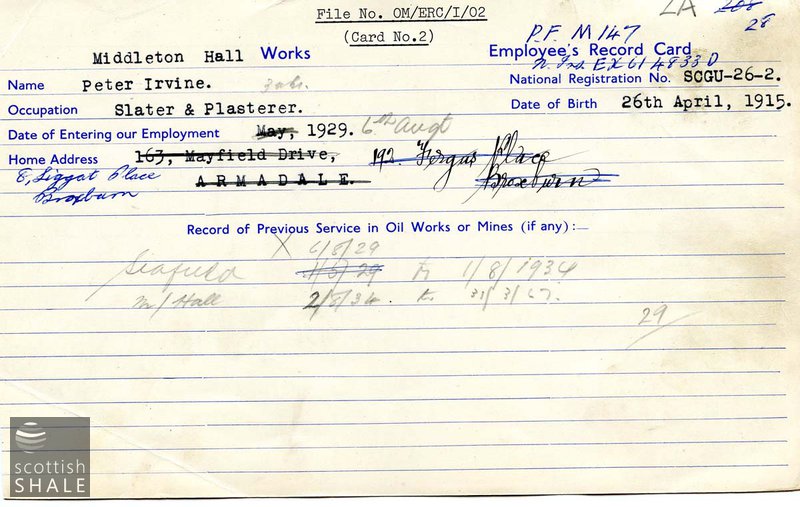 File No. OM/ERC/I/02
(Card No.2)
LA 208
28
P.F. M147
Middleton Hall Works Employee's Record Card
N. Ins. EX614833D
Name Peter Irvine. National Registration No. SCGU-26-2.
Occupation Slater & Plasterer. Date of Birth 26th April, 1915.
Date of Entering our Employment May, 1929. 6th Augt
Home Address 163, Mayfield Drive, 192. Fergus Place
8, Liggat Place ARMADALE. Broxburn
Broxburn
Record of Previous Service in Oil Works or Mines (if any):—
X 6/8/29
Seafield 1/5/29 to 1/8/1934
M/Hall 2/8/34. to 31/3/67.
29/
scottish
SHALE